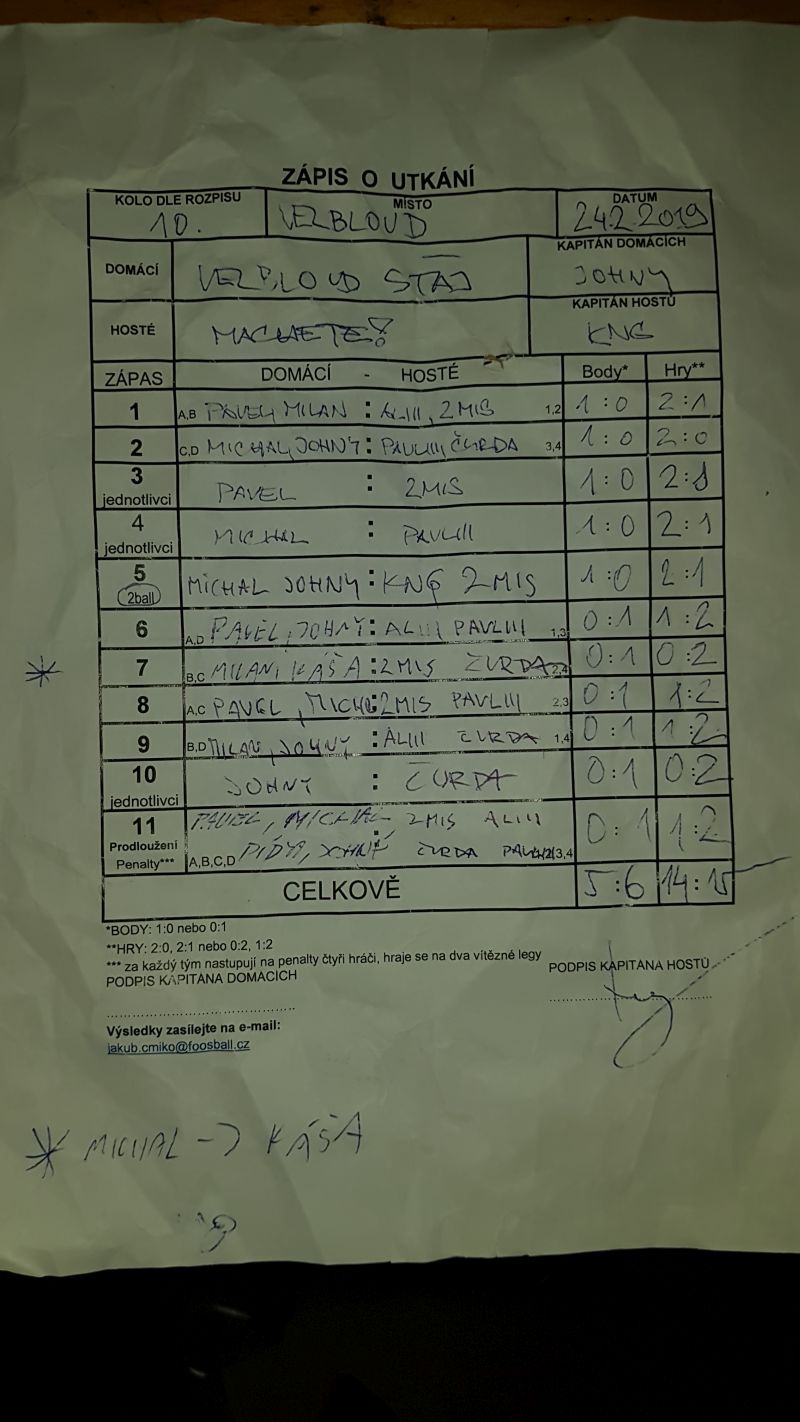 ZÁPIS O UTKÁNÍ
KOLO DLE ROZPISU MÍSTO DATUM
10. VELBLOUD 24.2.2019
DOMÁCÍ VELBLOUD STÁJ KAPITÁN DOMÁCÍCH JOHNY
HOSTÉ MACHETE! KAPITÁN HOSTŮ KNG
ZÁPAS DOMÁCÍ - HOSTÉ Body* Hry**
1 A,B PAVEL, MILAN : ALIII, 2MIS 1,2 1:0 2:1
2 C,D MICHAL, JOHNY : PAVLIII, ČURDA 3,4 1:0 2:0
3 jednotlivci PAVEL : 2MIS 1:0 2:1
4 jednotlivci MICHAL : PAVLIII 1:0 2:1
5 2ball MICHAL JOHNY : KNG 2MIS 1:0 2:1
6 A,D PAVEL, JOHNY : ALIII PAVLIII 1,3 0:1 1:2
7 B,C MILAN KÁŠA : 2MIS ČURDA 2,4 0:1 0:2
8 A,C PAVEL, MICHAL : 2MIS PAVLIII 2,3 0:1 1:2
9 B,D MILAN, JOHNY : ALIII ČURDA 1,4 0:1 1:2
10 jednotlivci JOHNY : ČURDA 0:1 0:2
11 PAVEL, MICHAL : 2MIS ALIII 0:1 1:2
Prodloužení
Penalty*** A,B,C,D JOHNY ČURDA 3,4
CELKOVĚ 5:6 14:15
*BODY: 1:0 nebo 0:1
**HRY: 2:0, 2:1 nebo 0:2, 1:2
*** za každý tým nastupují na penalty čtyři hráči, hraje se na dva vítězné legy
PODPIS KAPITÁNA DOMÁCÍCH PODPIS KAPITÁNA HOSTŮ
Výsledky zasílejte na e-mail:
jakub.cmiko@foosball.cz
* MICHAL -> KÁŠA